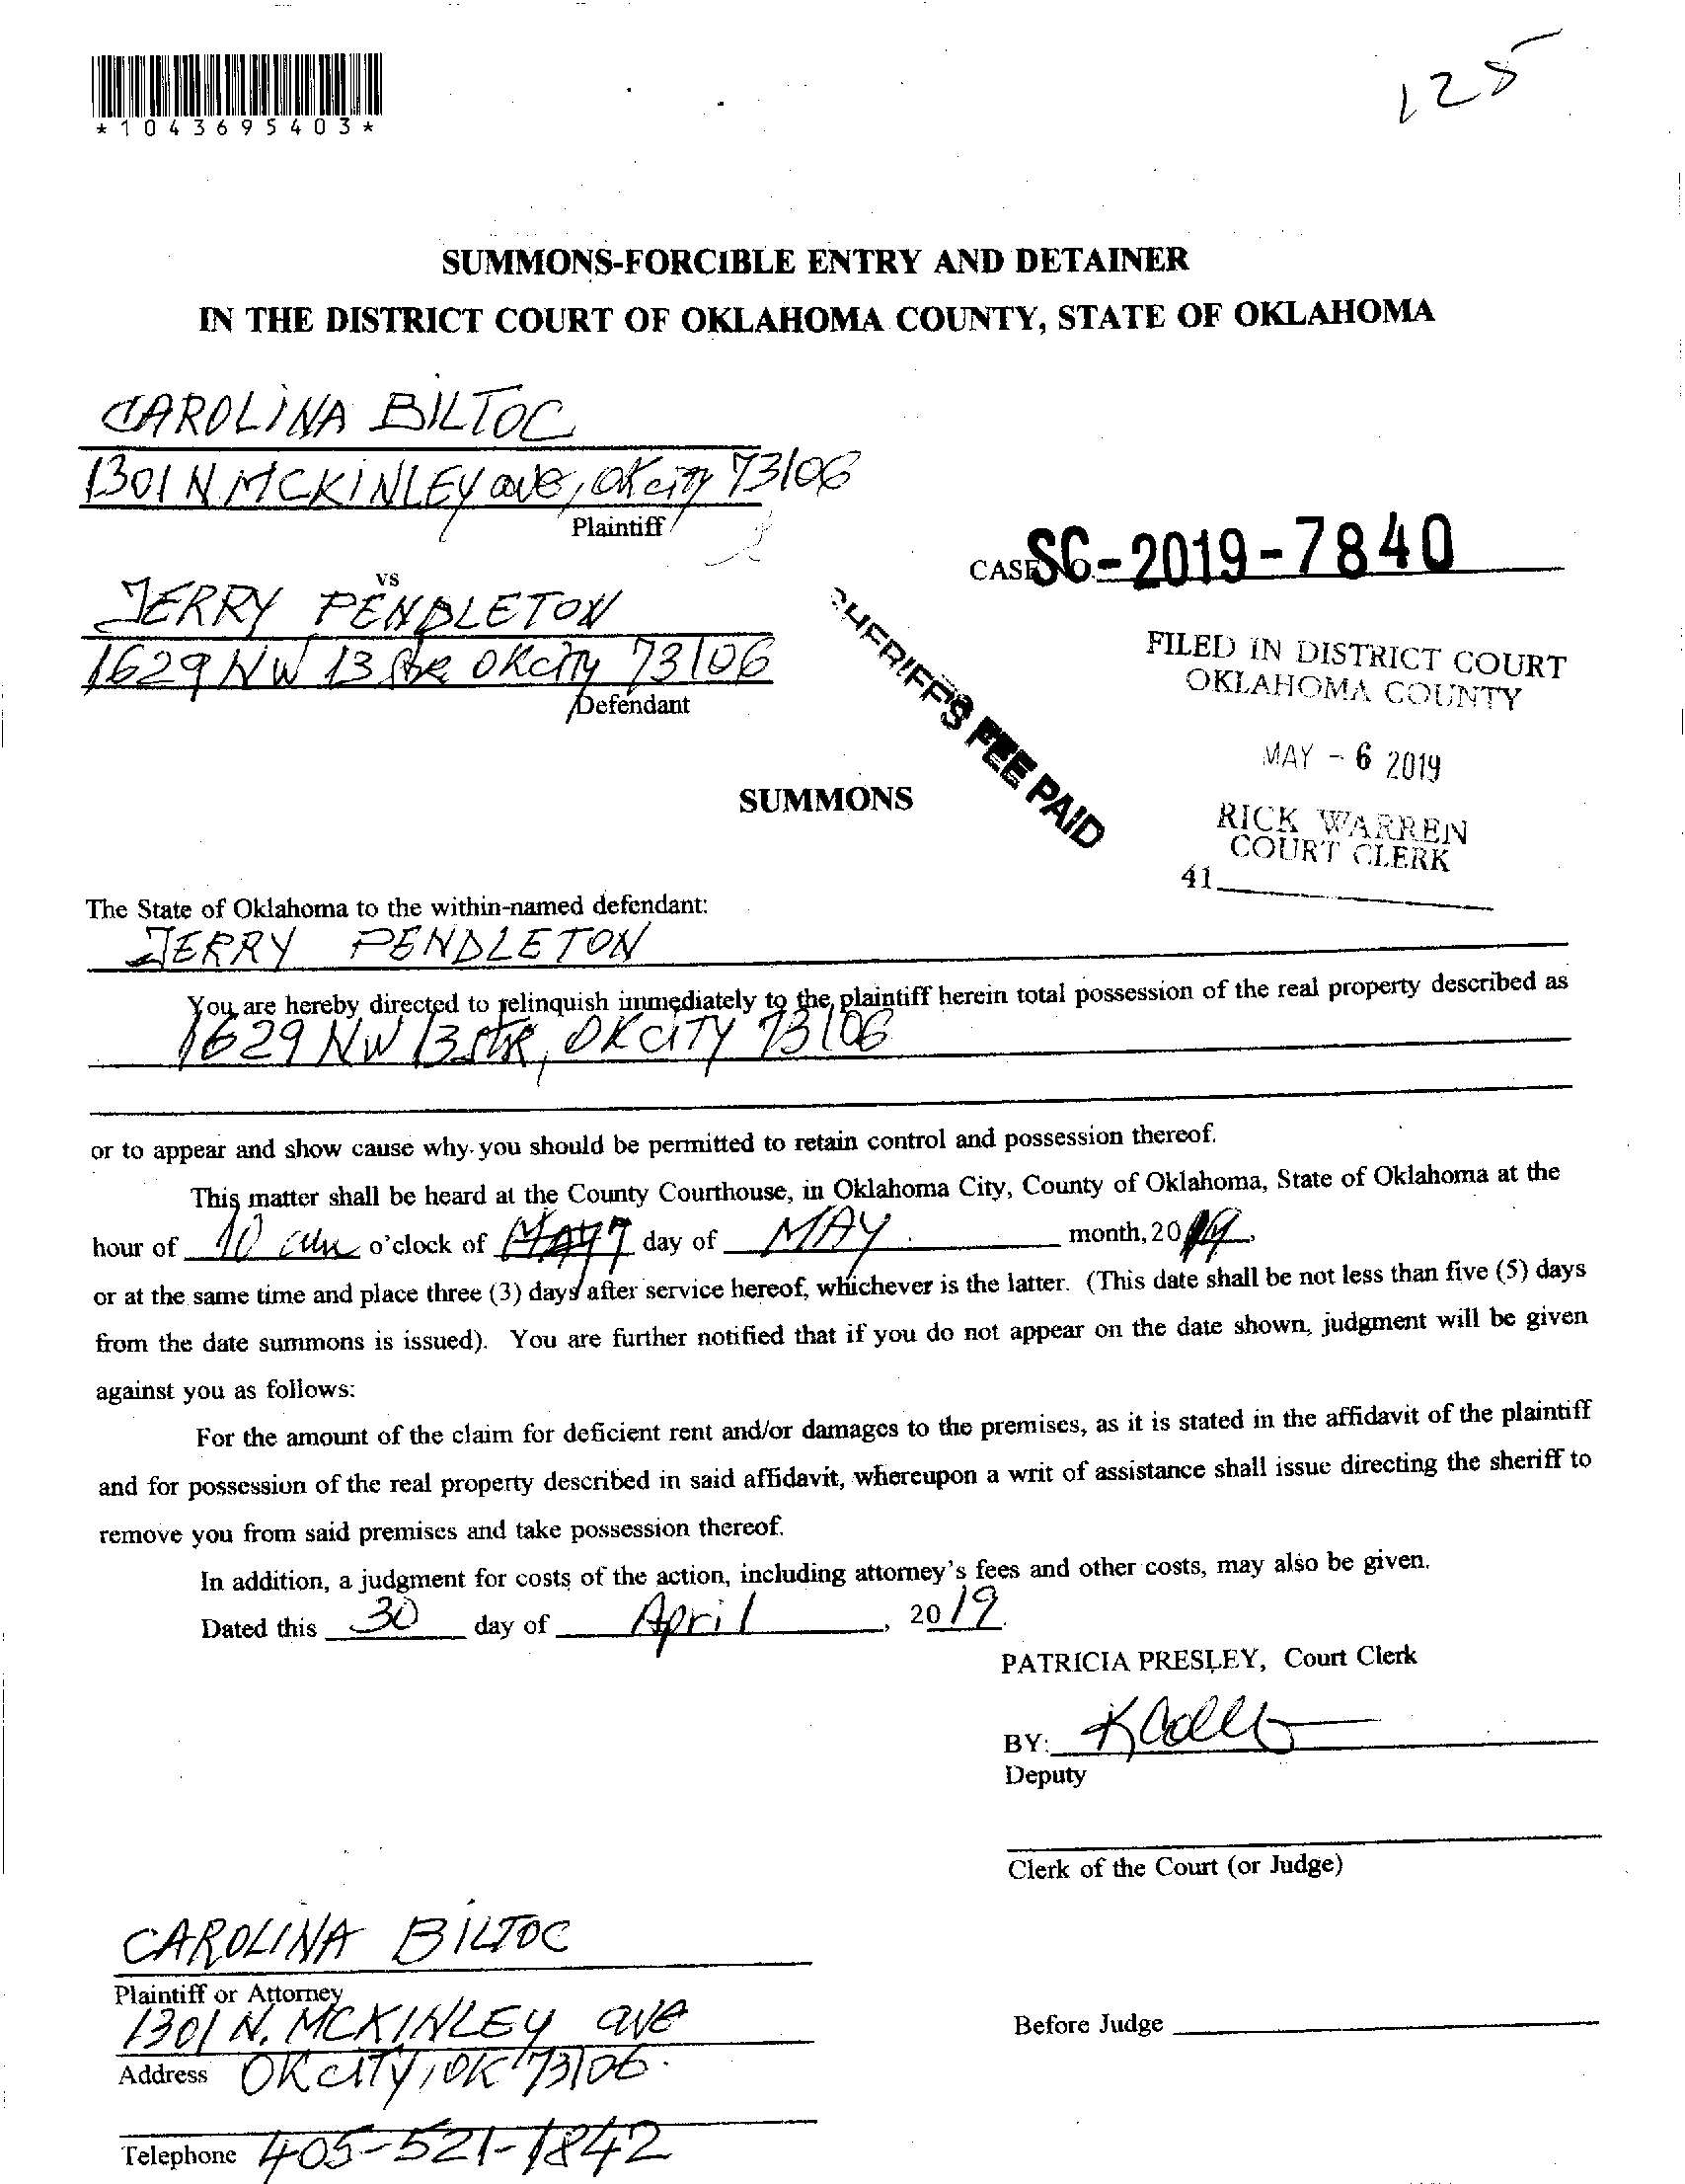 *1043695403*
125
SUMMONS-FORCIBLE ENTRY AND DETAINER
IN THE DISTRICT COURT OF OKLAHOMA COUNTY, STATE OF OKLAHOMA
CAROLINA BILTOC
1301 N MCKINLEY ave, OKcity 73106
Plaintiff
vs
CASE NO. SC-2019-7840
JERRY PENDLETON
1629 NW 13 str OKcity 73106
Defendant
SHERIFF'S FEE PAID
FILED IN DISTRICT COURT
OKLAHOMA COUNTY
MAY - 6 2019
RICK WARREN
COURT CLERK
41
SUMMONS
The State of Oklahoma to the within-named defendant:
JERRY PENDLETON
You are hereby directed to relinquish immediately to the plaintiff herein total possession of the real property described as
1629 NW 13 str, OKCITY 73106
or to appear and show cause why you should be permitted to retain control and possession thereof.
This matter shall be heard at the County Courthouse, in Oklahoma City, County of Oklahoma, State of Oklahoma at the
hour of 10 am o'clock of day of MAY month, 2019,
or at the same time and place three (3) days after service hereof, whichever is the latter. (This date shall be not less than five (5) days
from the date summons is issued). You are further notified that if you do not appear on the date shown, judgment will be given
against you as follows:
For the amount of the claim for deficient rent and/or damages to the premises, as it is stated in the affidavit of the plaintiff
and for possession of the real property described in said affidavit, whereupon a writ of assistance shall issue directing the sheriff to
remove you from said premises and take possession thereof.
In addition, a judgment for costs of the action, including attorney's fees and other costs, may also be given.
Dated this 30 day of April, 2019.
PATRICIA PRESLEY, Court Clerk
BY:
Deputy
Clerk of the Court (or Judge)
CAROLINA BILTOC
Plaintiff or Attorney
1301 N. MCKINLEY ave
Address OKCITY, OK 73106.
Before Judge
Telephone 405-521-1842